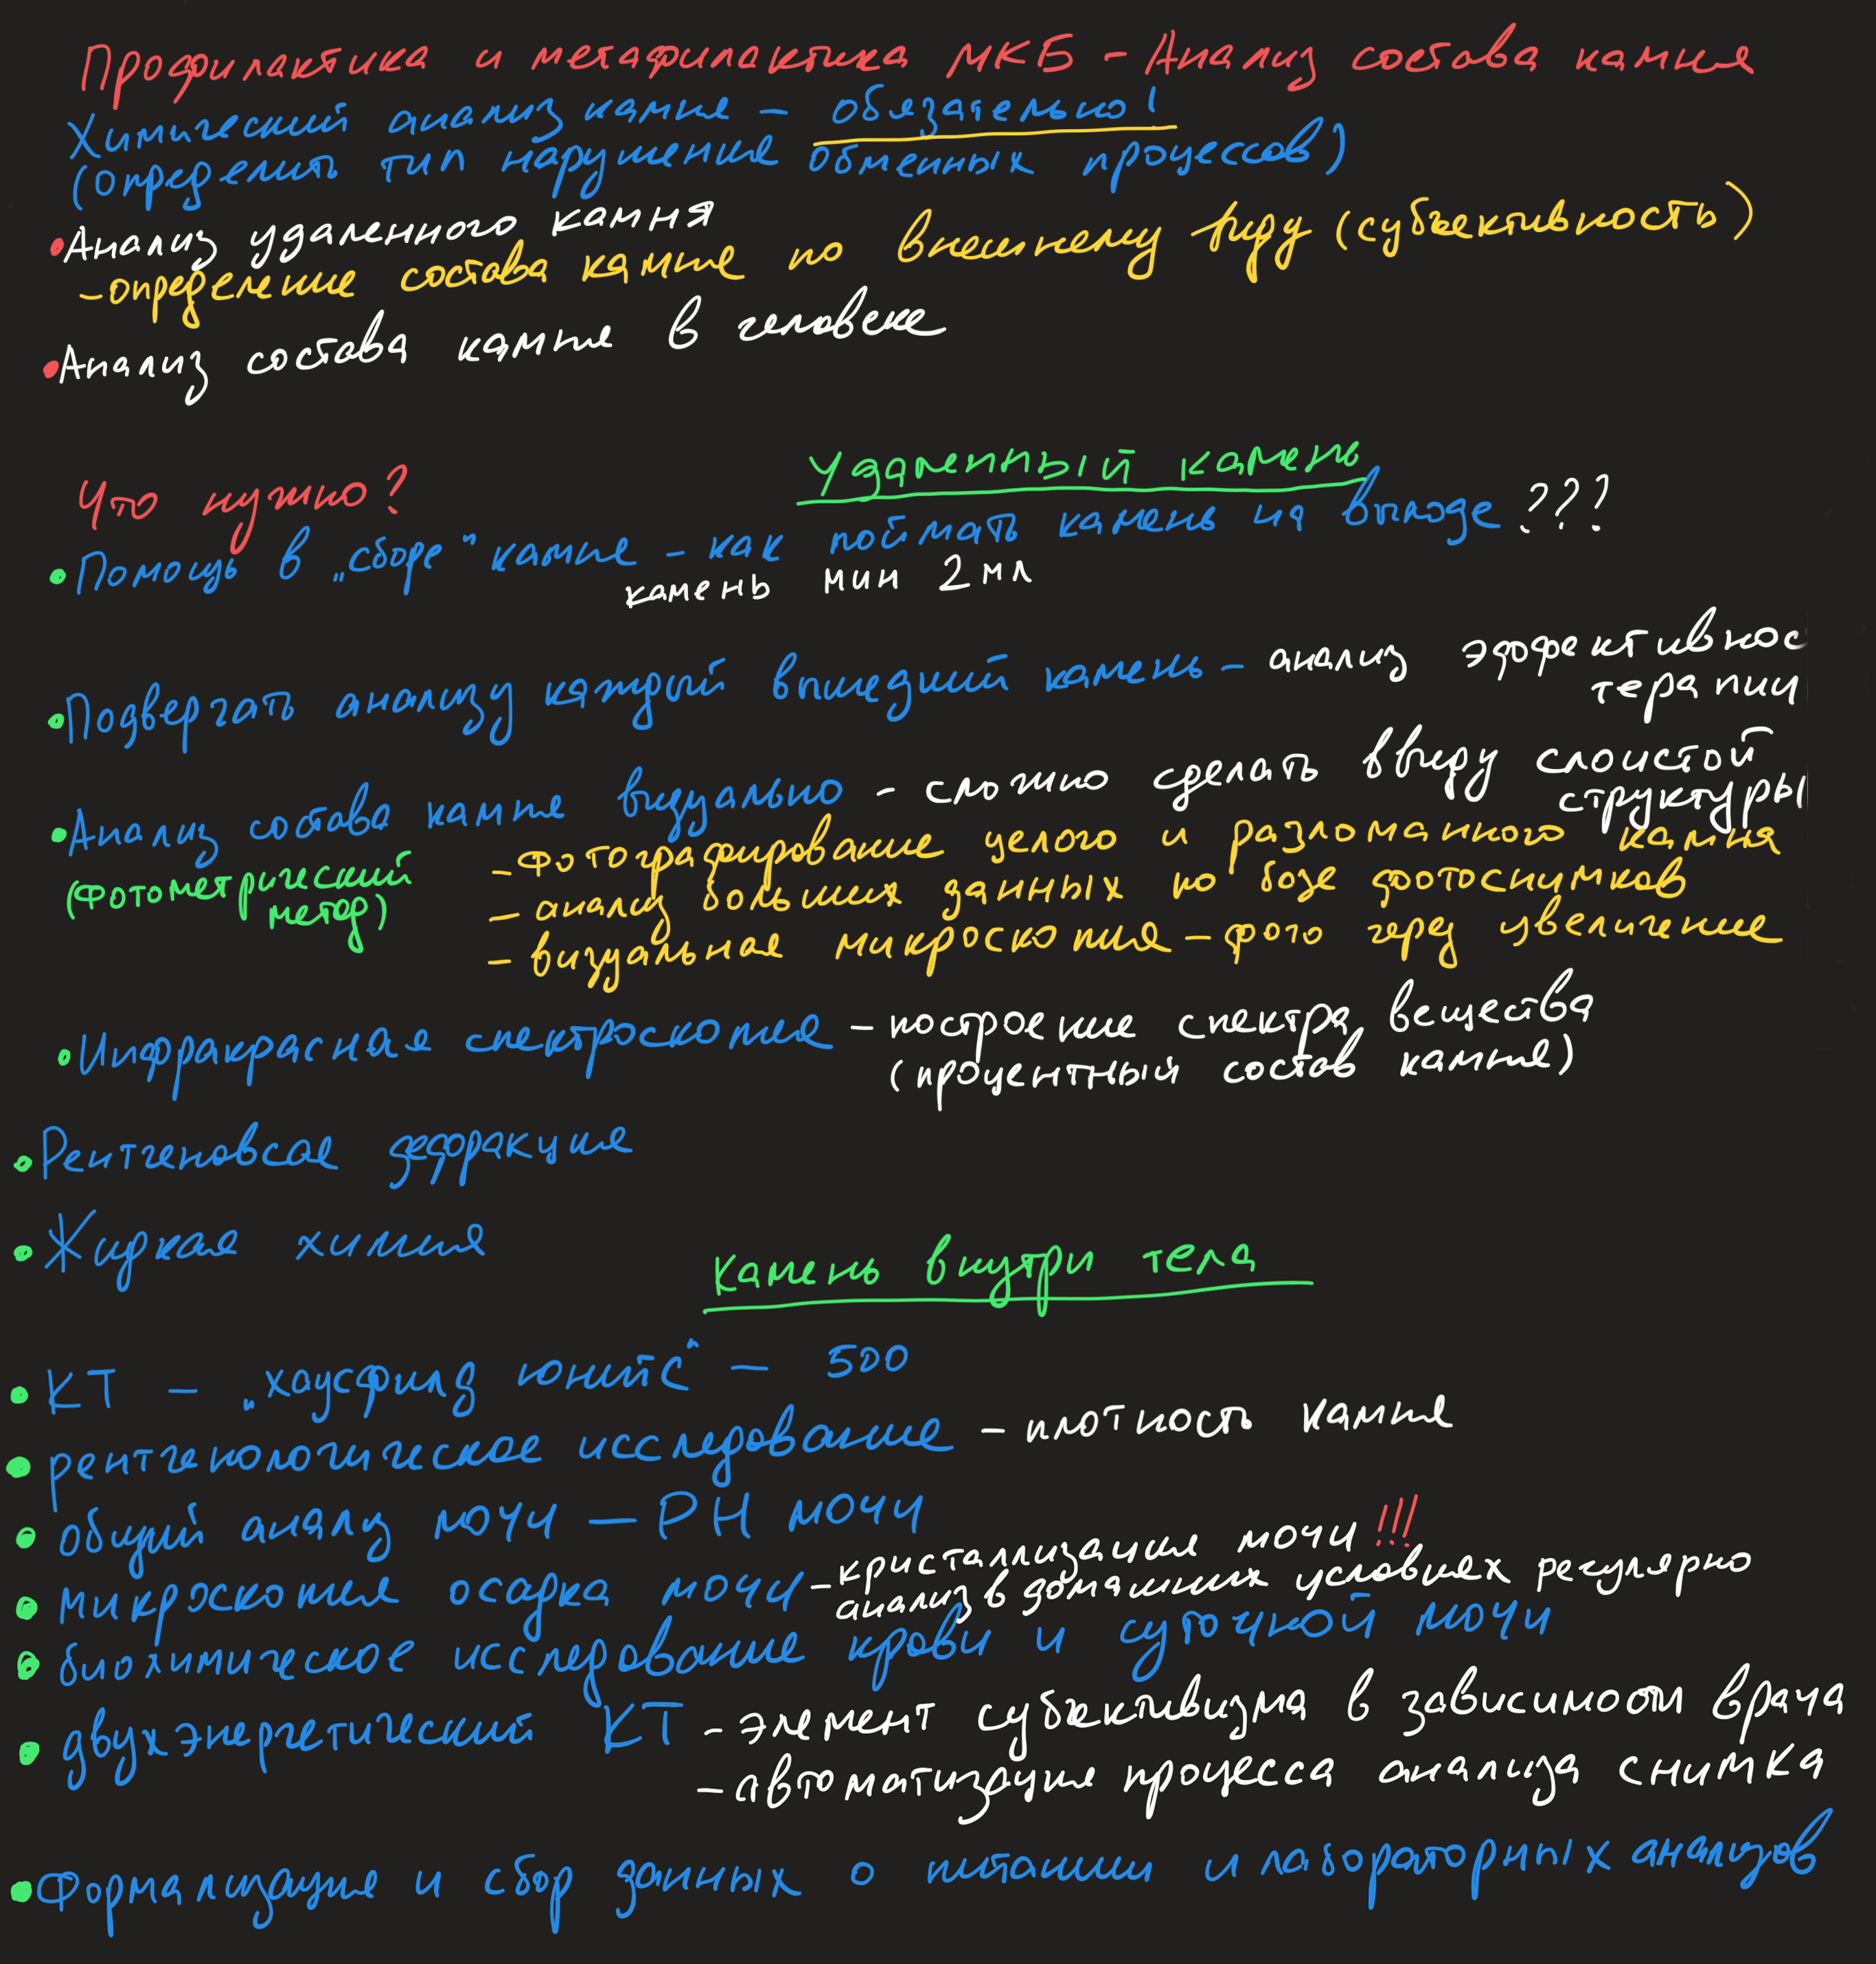 Профилактика и метафилактика МКБ - Анализ состава камня
Химический анализ камня - обязательно!
(определить тип нарушения обменных процессов)
•Анализ удаленного камня
-определение состава камня по внешнему виду (субъективность)
•Анализ состава камня в человеке
Удаленный камень
Что нужно?
•Помощь в „сборе" камня - как поймать камень на выходе ???
камень мин 2мл
•Подвергать анализу каждый вышедший камень - анализ эффективнос
терапии
•Анализ состава камня визуально - сложно сделать ввиду слоистой
структуры
(фотометрический
метод)
-Фотографирование целого и разломанного камня
- анализ больших данных по базе фотоснимков
- визуальная микроскопия - фото через увеличение
•Инфракрасная спектроскопия - построение спектра вещества
(процентный состав камня)
•Рентгеновсая дефракция
•Жидкая химия
Камень внутри тела
•КТ - „хаусфилд юнитс" - 500
•рентгенологическое исследование - плотность камня
•общий анализ мочи - РН мочи
•микроскопия осадка мочи - кристаллизация мочи!!!
анализ в домашних условиях регулярно
•биохимическое исследование крови и суточной мочи
•двухэнергетический КТ - элемент субъективизма в зависимости врача
- автоматизация процесса анализа снимка
•Формализация и сбор данных о питании и лабораторных анализов